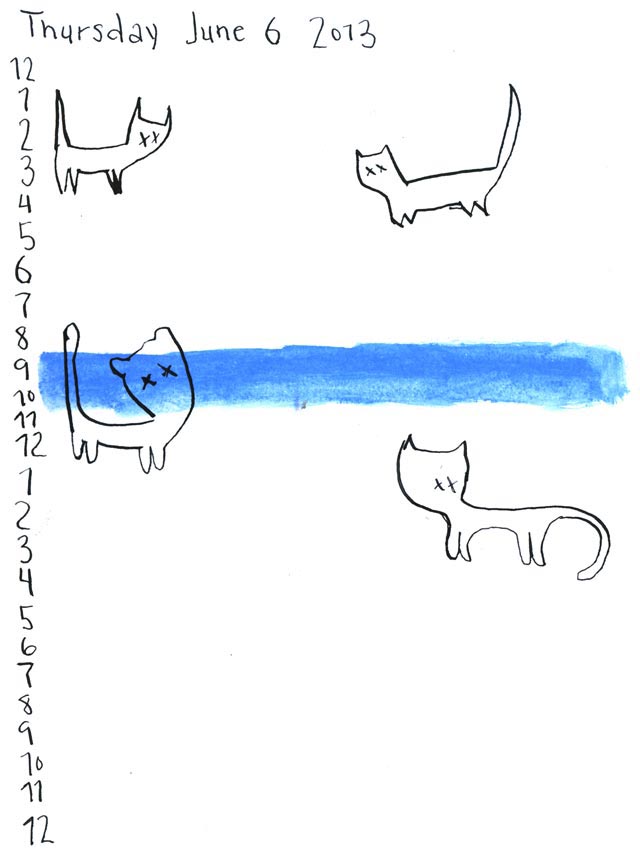 Thursday June 6 2013
12
1
2
3
4
5
6
7
8
9
10
11
12
1
2
3
4
5
6
7
8
9
10
11
12